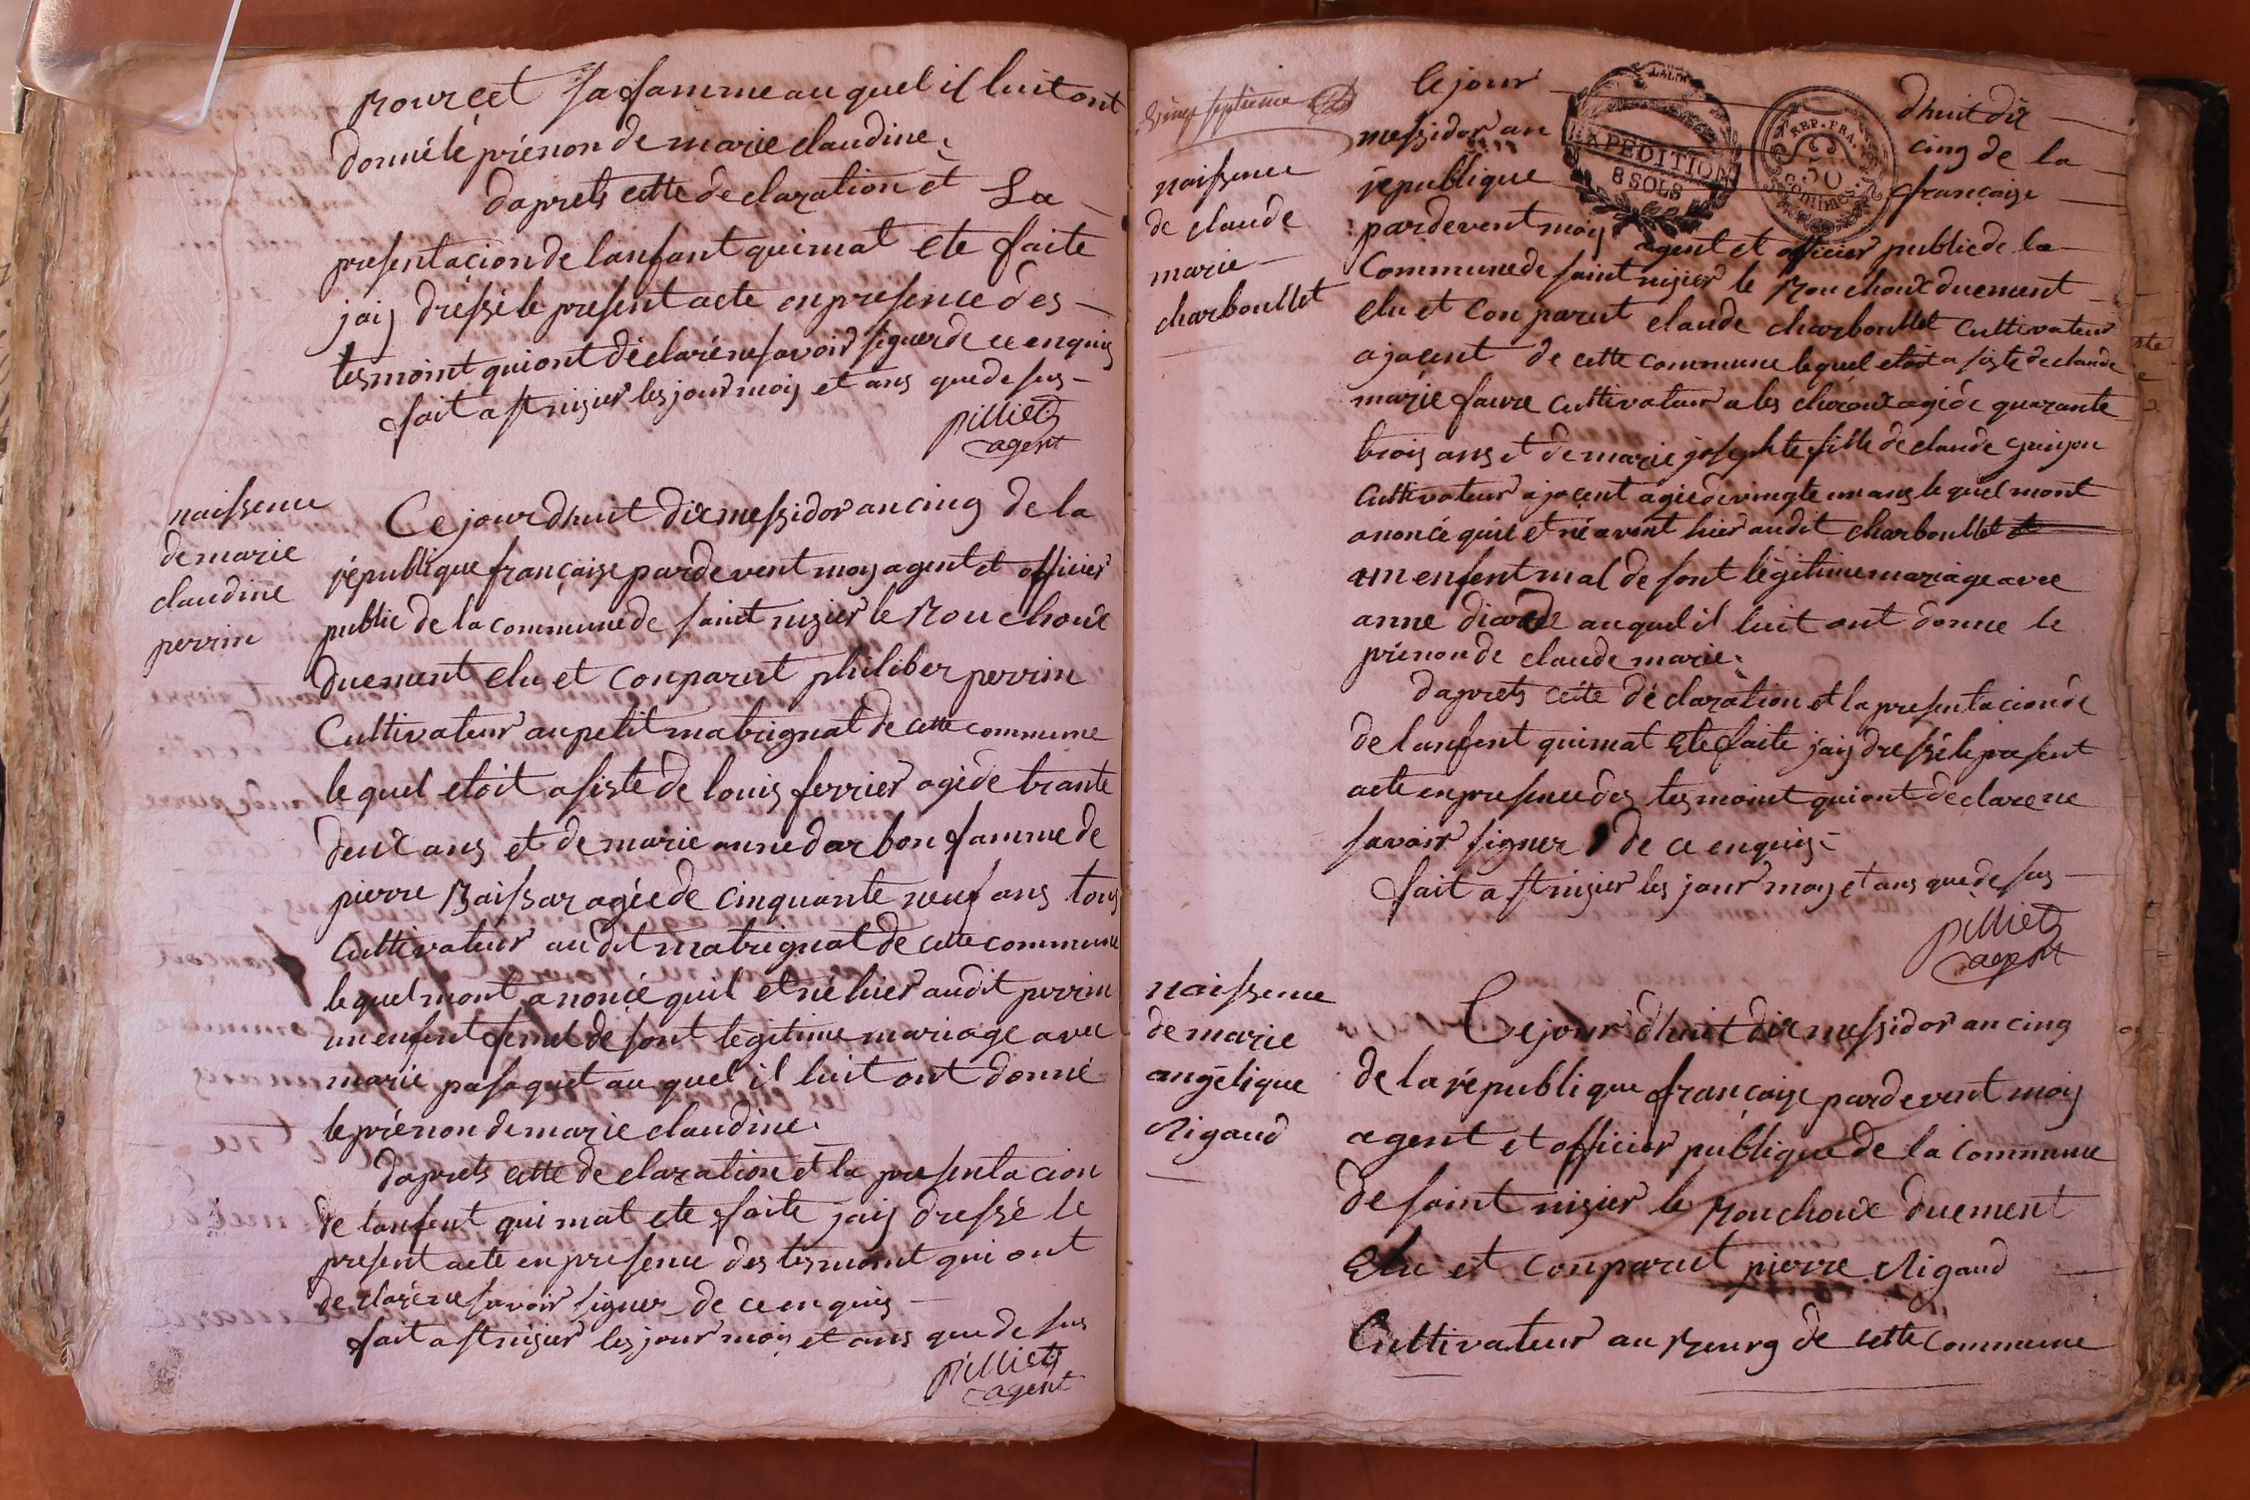 rourcet sa famme au quel il luit ont
donné le prénon de marie claudine.
daprets cette declaration et La
presentacion de lanfant qui mat ete faite
jaij dréssé le present acte en presence des
tesmoint qui ont déclaré ne savoir signer de ce enquis
fait a st nisier les jour mois et ans que de sus
pilliet
agent
naissence
de marie
claudine
perrin
Ce jour dhuit dix messidor an cinq de la
république françaize pardevent moy agent et officier
public de la commune de saint nizier le Bouchoux
duement elu et conparut philiber perrin
Cultivateur au petit matrignat de cette commune
le quel etoit asisté de louis ferrier agé de trante
deux ans et de marie anne darbon famme de
pierre Baissar agée de cinquante neuf ans tous
Cultivateur au dit matrignat de cette commune
le quel mont anoncé quil et né hier audit perrin
un enfent femel de sont legitime mariage avec
marie pasaquet au quel il luit ont donné
le prénon de marie claudine.
daprets cette declaration et la presentacion
de lanfent qui mat ete faite jaij dressé le
present acte en presence des tesmoint qui ont
declaré ne savoir signer de ce enquis
fait a st nisier les jour mois et ans que de sus
pilliet
agent
vingt septieme
naissence
de claude
marie
charboullet
Ce jour dhuit dix
messidor an cinq de la
république françaize
EXPEDITION
8 SOLS
REP. FRA.
50
centimes
pardevent moy agent et officier public de la
Commune de saint nizier le Bouchoux duement
elu et conparut claude charboullet cultivateur
ajacent de cette commune le quel etoit asisté de claude
marie favre cultivateur a les cheroux agé de quarante
trois ans et de marie josephte fille de claude guijon
Cultivateur ajacent agée de vingte un ans le quel mont
anoncé quil et né avant hier audit charboullet
un enfent mal de sont légitime mariage avec
anne au quel il luit ont donne le
prénon de claude marie.
daprets cette déclaration et la presentacion de
de lanfent qui mat ete faite jaij dressé le present
acte en presence des tesmoint qui ont declare ne
savoir signer de ce enquis
fait a st nisier les jour moy et ans que de sus
pilliet
agent
naissence
de marie
angélique
Rigaud
Ce jour dhuit dix messidor an cinq
de la république françaize pardevent moij
agent et officier publique de la commune
de saint nizier le Bouchoux duement
Elu et conparut pierre Rigaud
Cultivateur au Bourg de cette commune